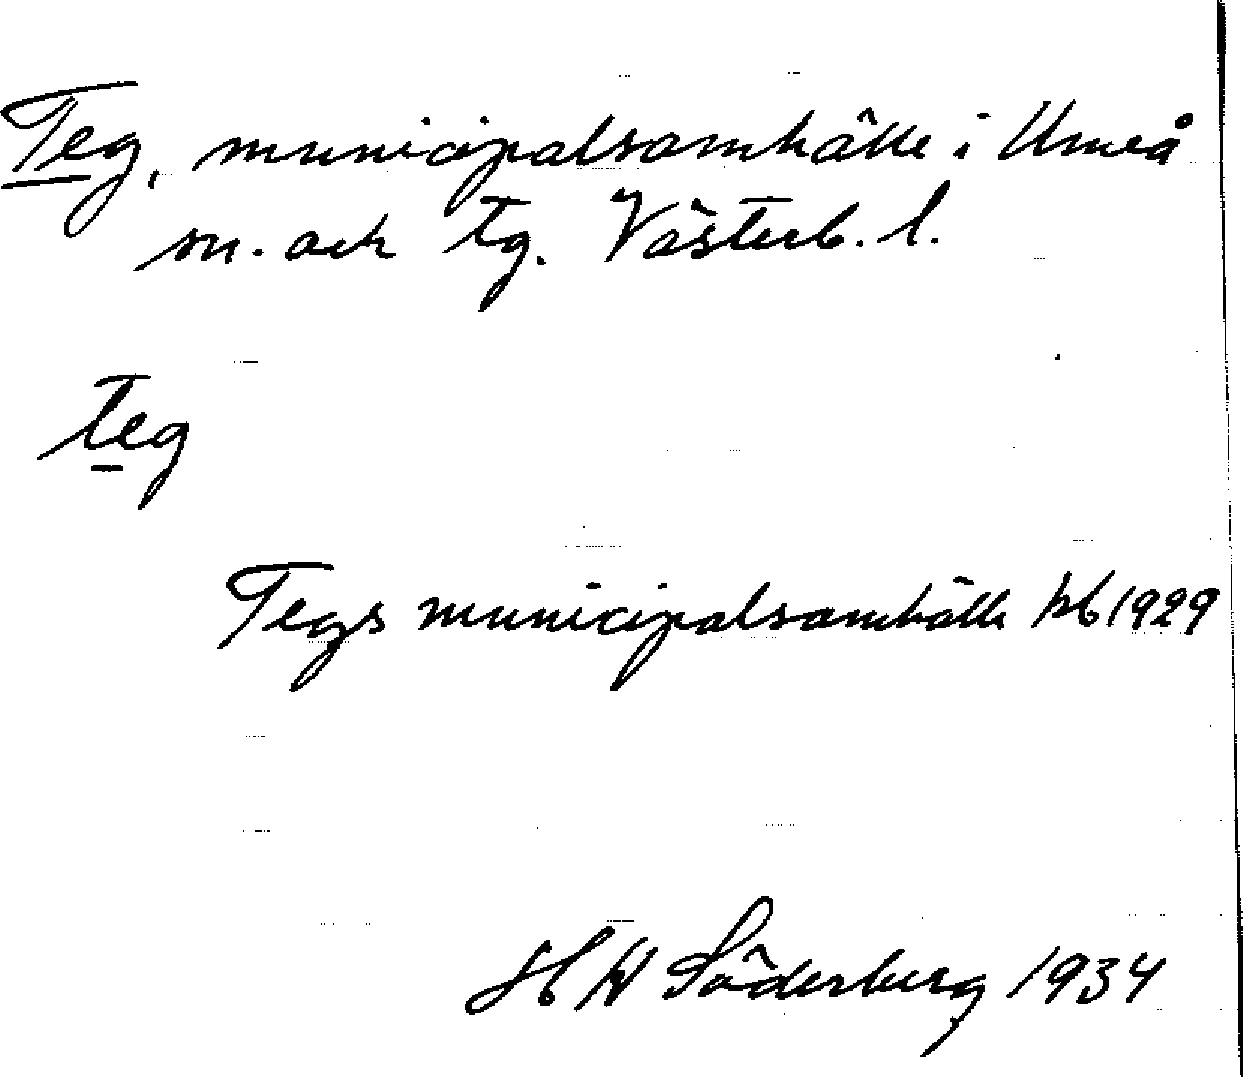 Teg, municipalsamhälle i Umeå
sn. och tg. Västerb. l.
teg
Tegs municipalsamhälle kb 1929
H W Söderberg 1934